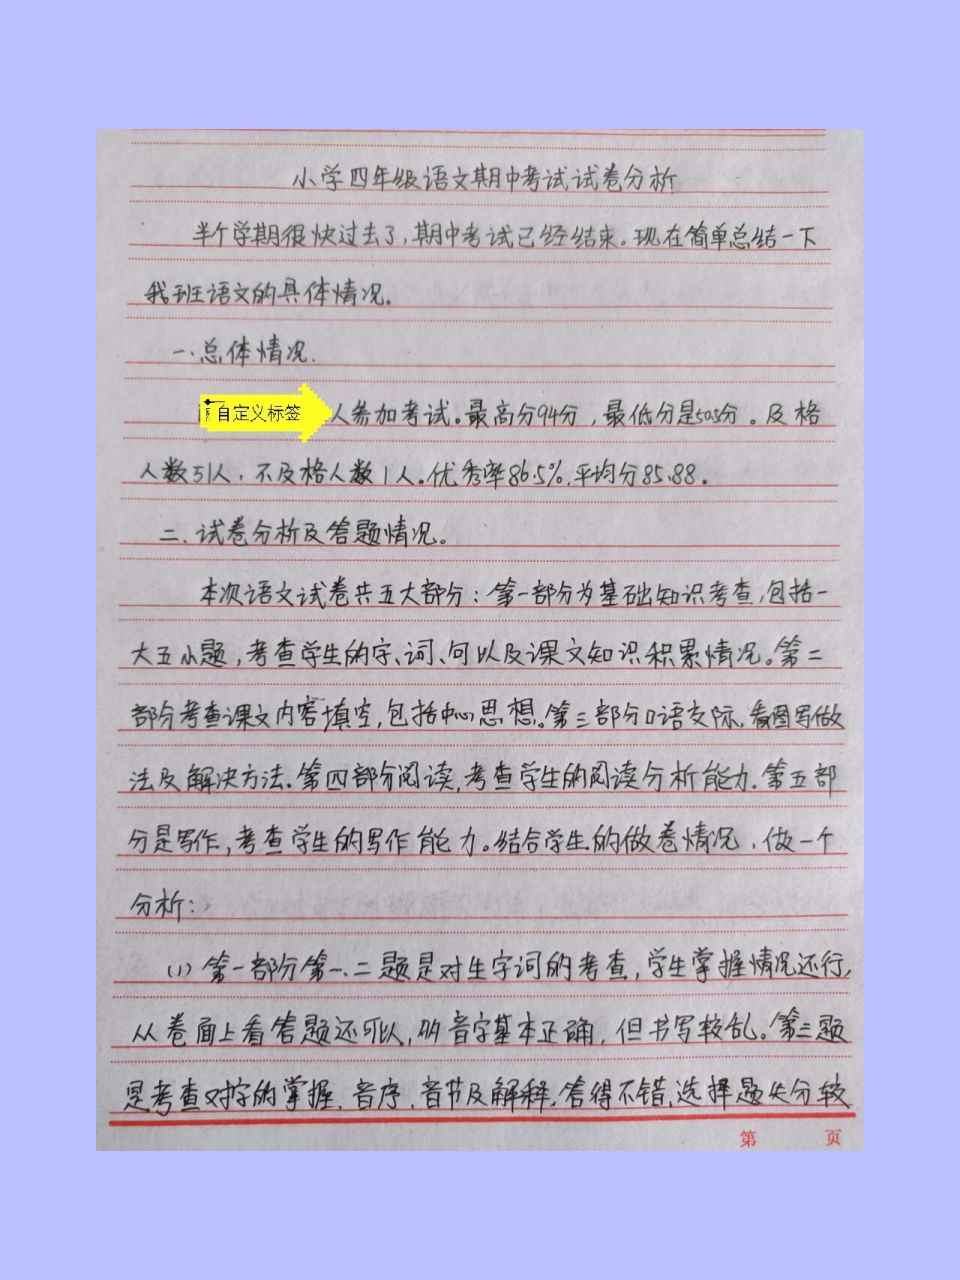 小学四年级语文期中考试试卷分析
半个学期很快过去了,期中考试已经结束。现在简单总结一下
我班语文的具体情况.
一.总体情况.
自定义标签
人参加考试。最高分94分,最低分是50.5分。及格
人数51人,不及格人数1人。优秀率86.5%,平均分85.88。
二.试卷分析及答题情况。
本次语文试卷共五大部分:第一部分为基础知识考查,包括一
大五小题,考查学生的字、词、句以及课文知识积累情况。第二
部分考查课文内容填空,包括中心思想。第三部分口语交际,看图写做
法及解决方法.第四部分阅读,考查学生的阅读分析能力.第五部
分是写作,考查学生的写作能力。结合学生的做卷情况,做一个
分析:
(1)第一部分第一、二题是对生字词的考查,学生掌握情况还行,
从卷面上看答题还可以,的音字基本正确,但书写较乱。第三题
是考查对字的掌握.音序,音节及解释.答得不错,选择题失分较
第 页